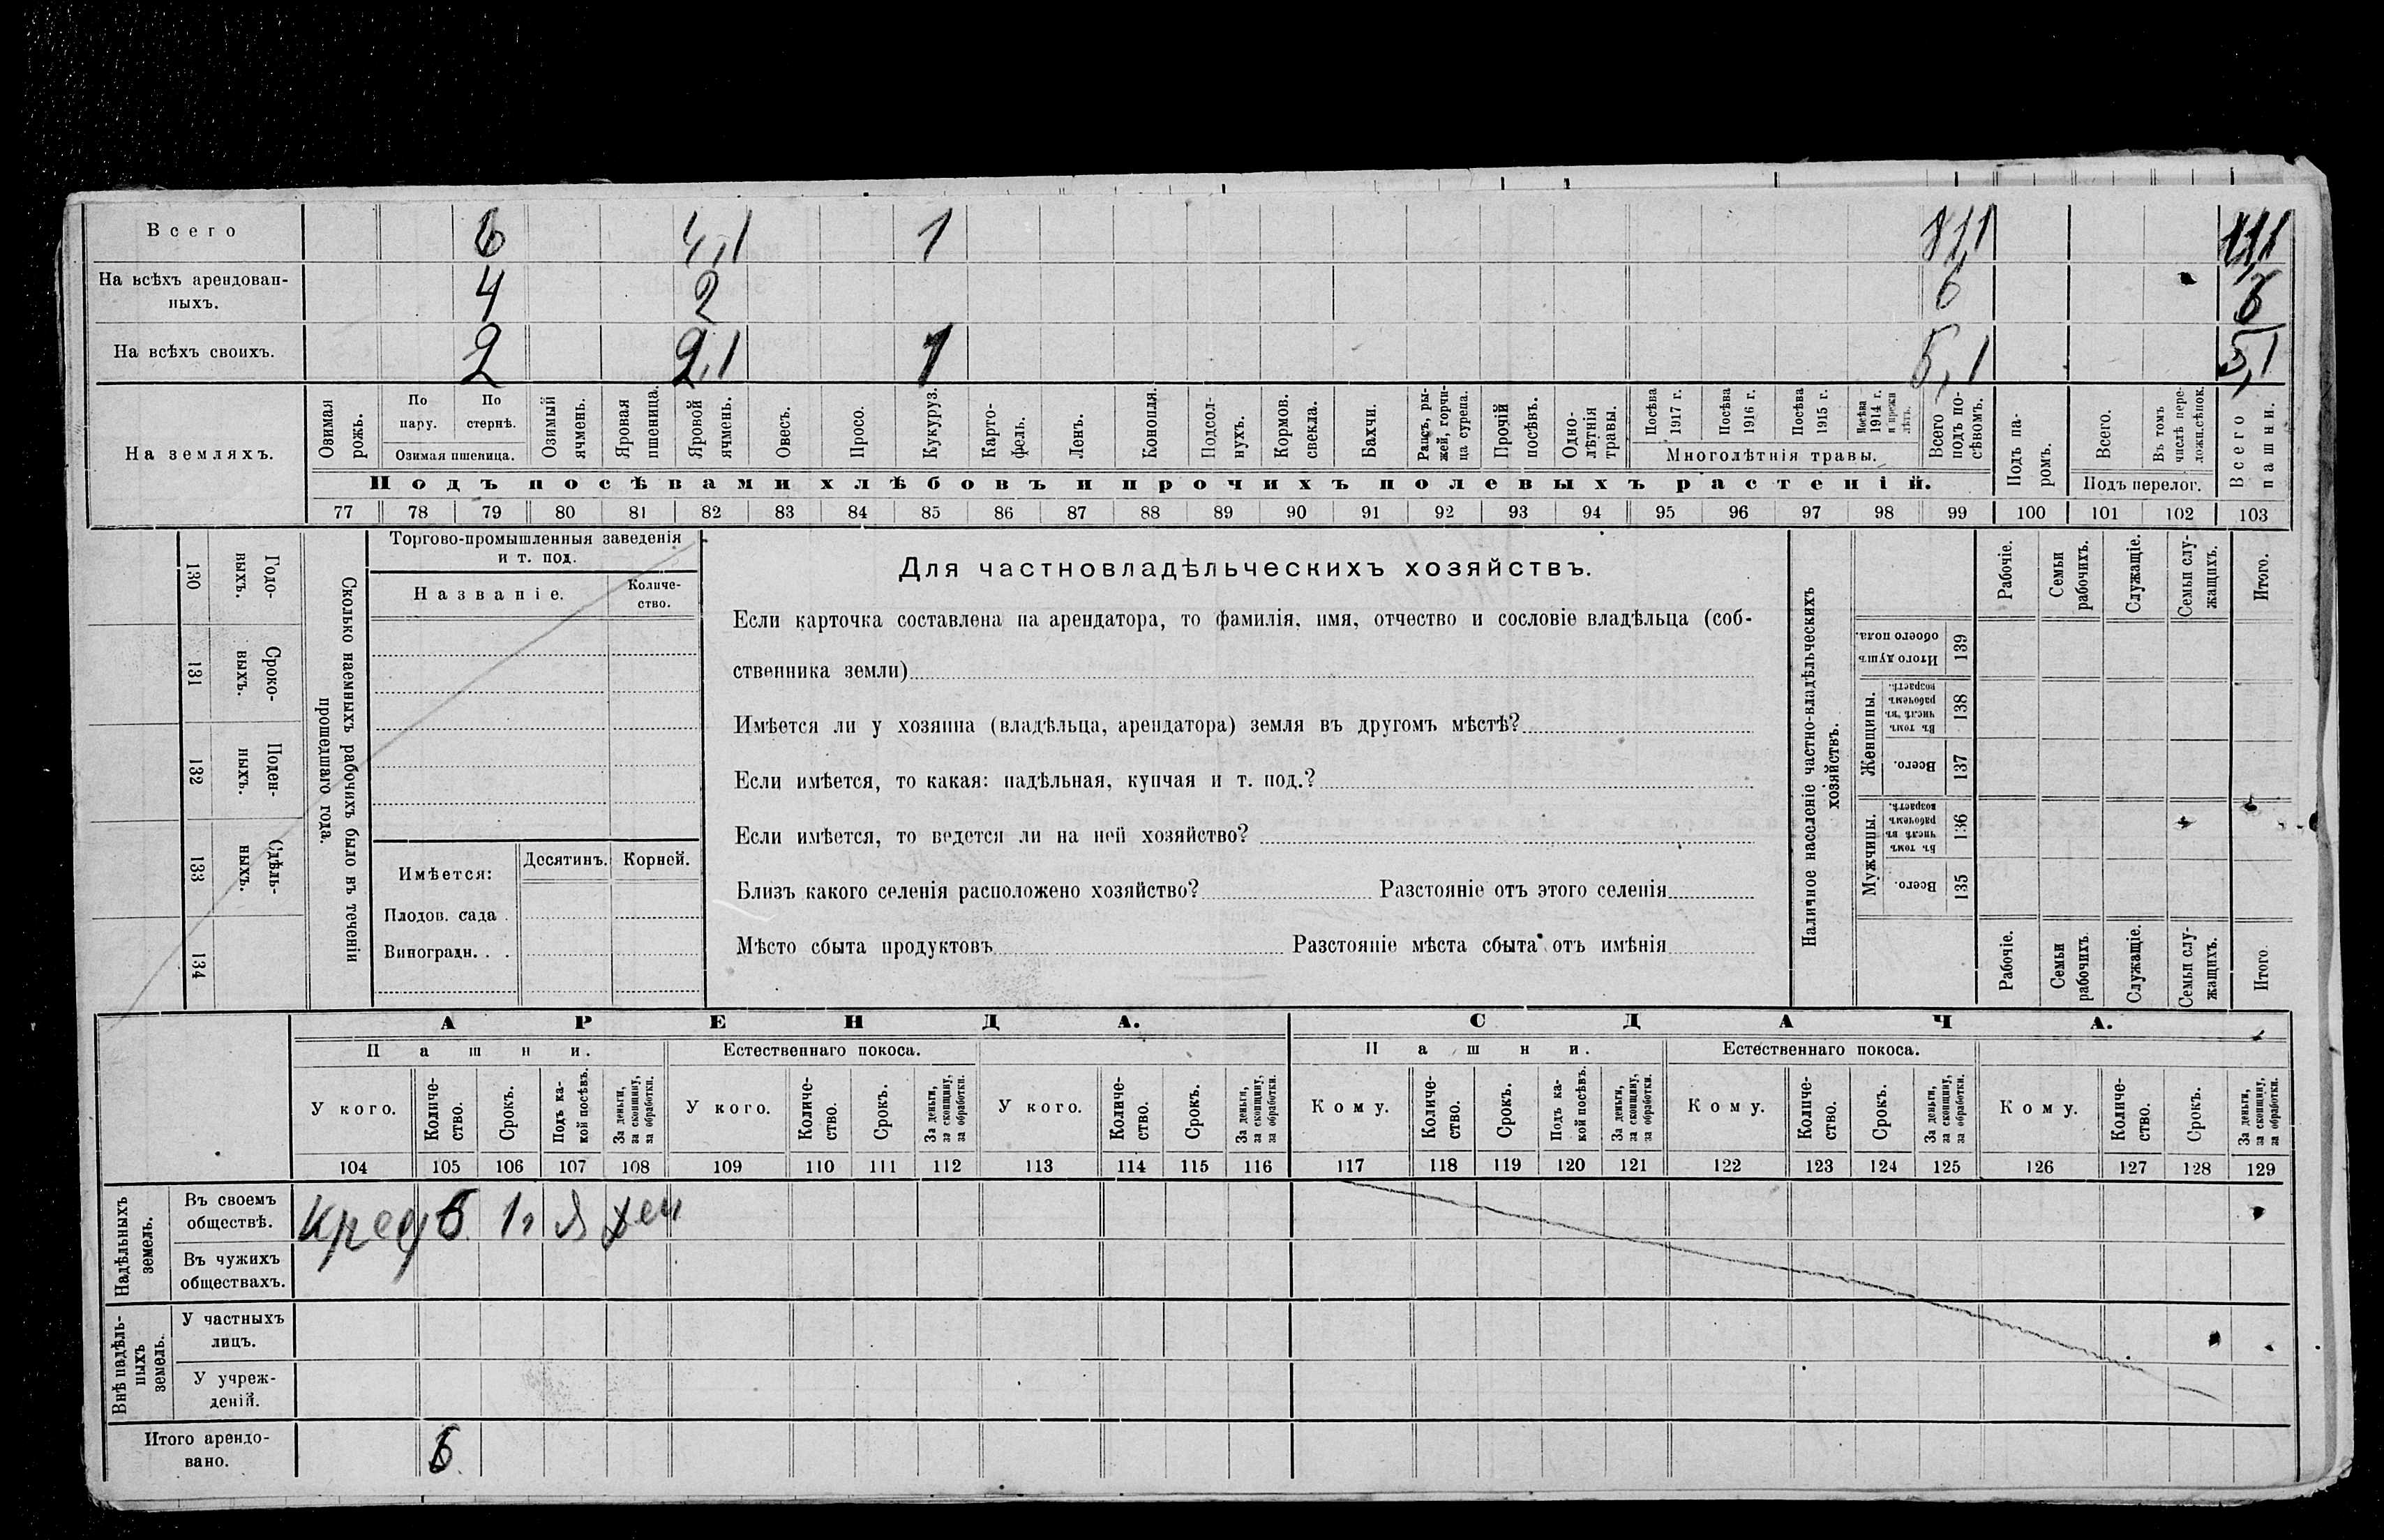 Всего 6 4,1 1 11,1 11,1
На всѣхъ арендован-
ныхъ. 4 2 6 6
На всѣхъ своихъ. 2 2,1 1 5,1 5,1
На земляхъ.
Озимая рожь.
По пару.
По стернѣ.
Озимая пшеница.
Озимый ячмень.
Яровая пшеница.
Яровой ячмень.
Овесъ.
Просо.
Кукуруз.
Карто-
фель.
Ленъ.
Конопля.
Подсол-
нухъ.
Кормов. свекла.
Бахчи.
Рапсъ, ры-
жей, горчи-
ца сурепа.
Прочій посѣвъ.
Одно-
лѣтнія травы.
Посѣва 1917 г.
Посѣва 1916 г.
Посѣва 1915 г.
Посѣва 1914 г. и прежн лѣтъ.
Многолѣтнія травы.
Всего подъ по-
сѣвомъ.
Подъ па-
ромъ.
Всего.
Въ томъ числѣ пере-
ложн.сѣнок.
Подъ перелог.
Всего пашни.
Подъ посѣвами хлѣбовъ и прочихъ полевыхъ растеній.
77 78 79 80 81 82 83 84 85 86 87 88 89 90 91 92 93 94 95 96 97 98 99 100 101 102 103
Годо-
выхъ.
130
Сроко-
выхъ.
131
Поден-
ныхъ.
132
Сдѣль-
ныхъ.
133
134
Сколько наемныхъ рабочихъ было въ теченіи
прошедшаго года.
Торгово-промышленныя заведенія
и т. под.
Названіе.
Количе-
ство.
Имѣется:
Десятинъ.
Корней.
Плодов. сада .
Виноградн. . .
Для частновладѣльческихъ хозяйствъ.
Если карточка составлена на арендатора, то фамилія, имя, отчество и сословіе владѣльца (соб-
ственника земли)
Имѣется ли у хозяина (владѣльца, арендатора) земля въ другомъ мѣстѣ?
Если имѣется, то какая: надѣльная, купчая и т. под.?
Если имѣется, то ведется ли на ней хозяйство?
Близъ какого селенія расположено хозяйство? Разстояніе отъ этого селенія
Мѣсто сбыта продуктовъ Разстояніе мѣста сбыта отъ имѣнія
Наличное населеніе частно-владѣльческихъ
хозяйствъ.
Рабочіе.
Семьи рабочихъ.
Служащіе.
Семьи слу-
жащихъ.
Итого.
Итого душъ обоего пола.
139
Женщины.
Въ томъ числѣ въ рабочемъ возрастѣ.
138
Всего.
137
Мужчины.
Въ томъ числѣ въ рабочемъ возрастѣ.
136
Всего.
135
Рабочіе.
Семьи рабочихъ.
Служащіе.
Семьи слу-
жащихъ.
Итого
АРЕНДА.
СДАЧА.
Пашни.
Естественнаго покоса.
Пашни.
Естественнаго покоса.
У кого.
Количе-
ство.
Срокъ.
Подъ ка-
кой посѣвъ.
За деньги,
за скопщину,
за обработки.
У кого.
Количе-
ство.
Срокъ.
За деньги,
за скопщину,
за обработки.
У кого.
Количе-
ство.
Срокъ.
За деньги,
за скопщину,
за обработки.
Кому.
Количе-
ство.
Срокъ.
Подъ ка-
кой посѣвъ.
За деньги,
за скопщину,
за обработки.
Кому.
Количе-
ство.
Срокъ.
За деньги,
за скопщину,
за обработки.
Кому.
Количе-
ство.
Срокъ.
За деньги,
за скопщину,
за обработки.
104 105 106 107 108 109 110 111 112 113 114 115 116 117 118 119 120 121 122 123 124 125 126 127 128 129
Надѣльныхъ
земель.
Въ своемъ
обществѣ. 6
Въ чужихъ
обществахъ.
Внѣ надѣль-
ныхъ
земель.
У частныхъ
лицъ.
У учреж-
деній.
Итого арендо-
вано. 6